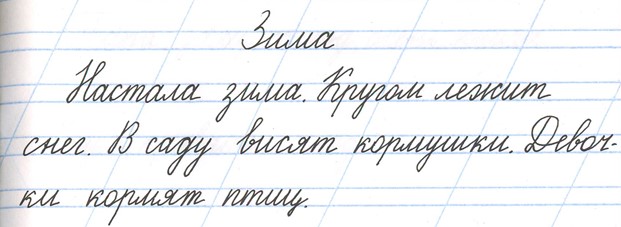 Зима
Настала зима. Кругом лежит
снег. В саду висят кормушки. Девоч-
ки кормят птиц.